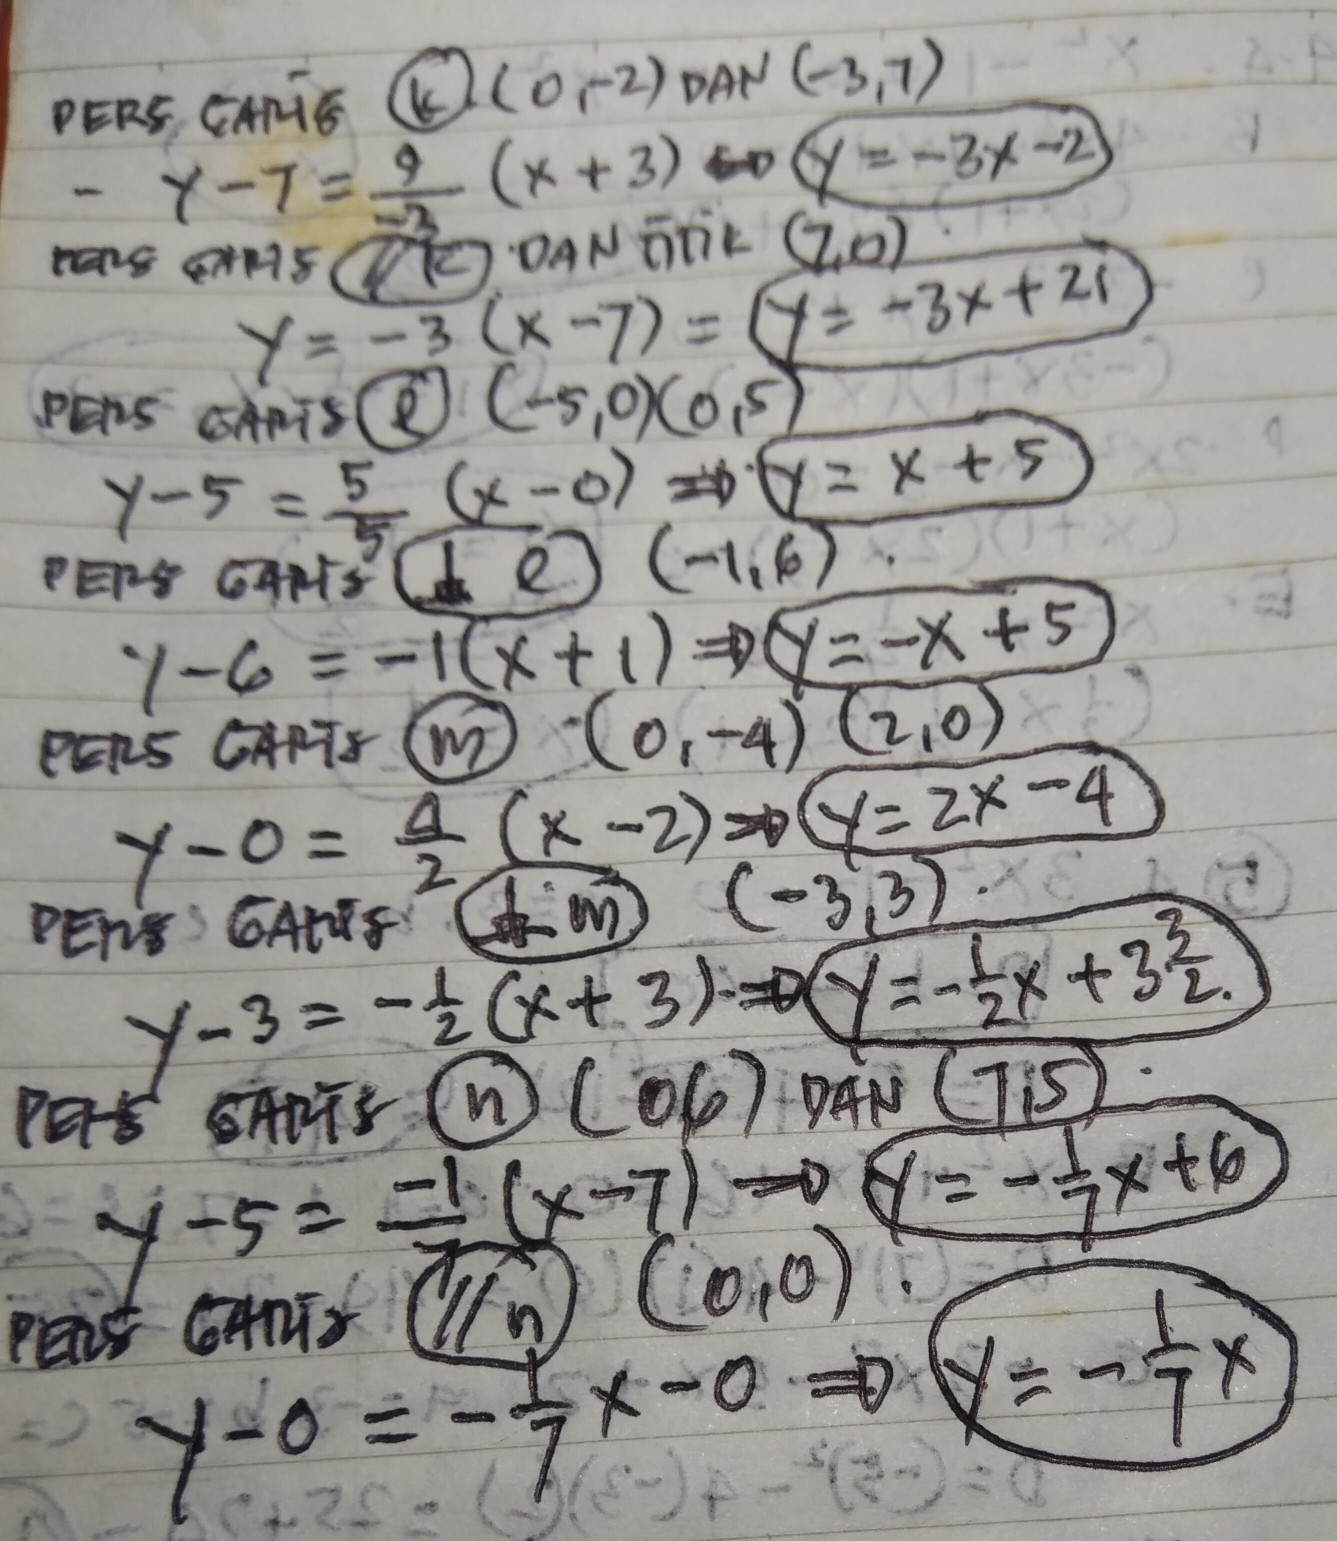 PERS GARIS k (0,-2) DAN (-3,7)
- y-7 = 9/-3 (x+3) ⇔ y = -3x-2
PERS GARIS //k DAN TITIK (7,0)
y = -3 (x-7) = y = -3x+21
PERS GARIS l (-5,0)(0,5)
y-5 = 5/5 (x-0) ⇒ y = x+5
PERS GARIS ⊥ l (-1,6).
y-6 = -1(x+1) ⇒ y = -x+5
PERS GARIS m (0,-4) (2,0)
y-0 = 4/2 (x-2) ⇒ y = 2x-4
PERS GARIS ⊥ m (-3,3).
y-3 = -1/2 (x+3) ⇒ y = -1/2x + 3 3/2.
PERS GARIS n (0,6) DAN (7,5).
y-5 = -1/7 (x-7) ⇒ y = -1/7x+6
PERS GARIS //n (0,0).
y-0 = -1/7x-0 ⇒ y = -1/7x